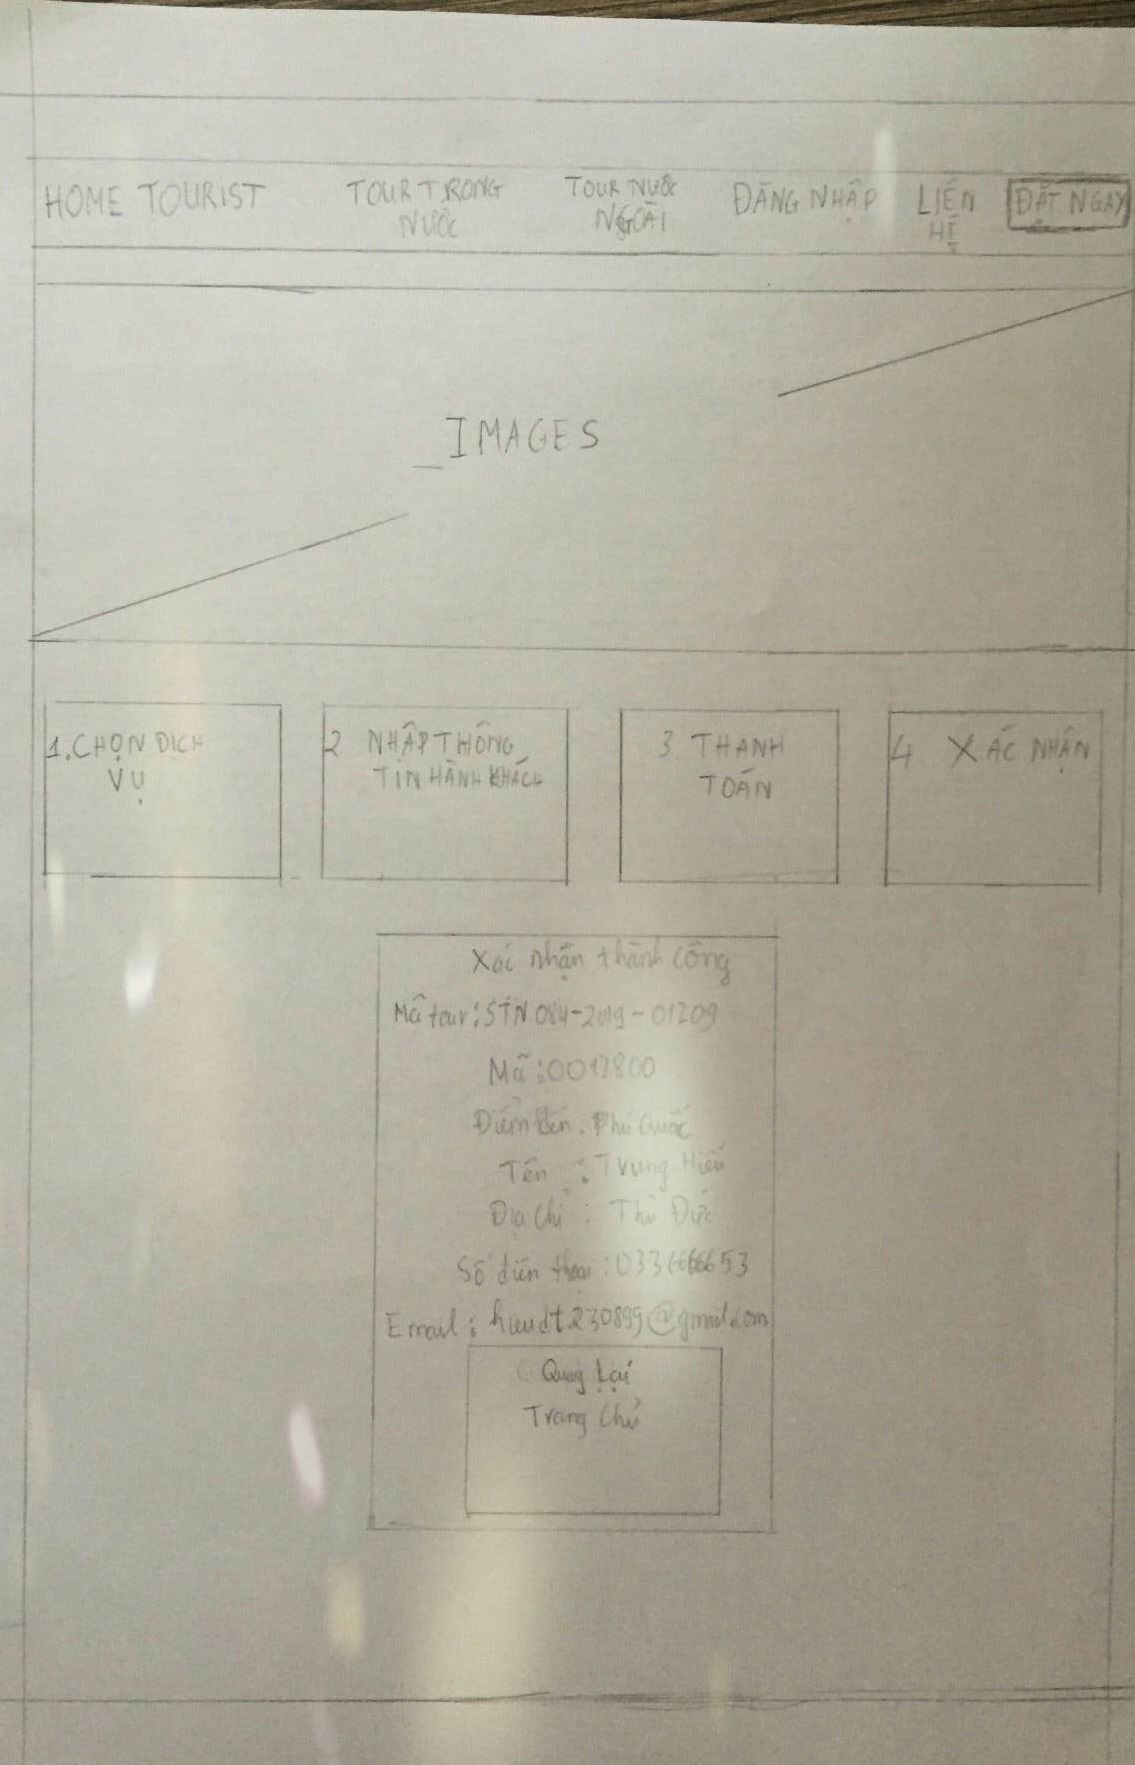 HOME TOURIST
TOUR TRONG
NƯỚC
TOUR NƯỚC
NGOÀI
ĐĂNG NHẬP
LIÊN
HỆ
ĐẶT NGAY
IMAGES
1. CHỌN DỊCH
VỤ
2 NHẬP THÔNG
TIN HÀNH KHÁCH
3. THANH
TOÁN
4 XÁC NHẬN
Xác nhận thành công
Mã tour: STN084-2019-01209
Mã: 0013800
Điểm đến: Phú Quốc
Tên : Trung Hiếu
Địa chỉ : Thủ Đức
Số điện thoại: 0336666653
Email: hieudt230899@gmail.com
Quay Lại
Trang Chủ